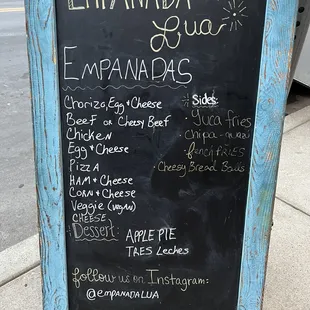 EMPANADA
Lua
EMPANADAS
Chorizo, Egg & Cheese
Beef or Cheesy Beef
Chicken
Egg & Cheese
Pizza
Ham & Cheese
Corn & Cheese
Veggie (vegan)
CHEESE
Dessert:
APPLE PIE
TRES Leches
Sides:
Yuca fries
chipa-guazu
french FRIES
Cheesy Bread Balls
follow us on Instagram:
@EMPANADALUA